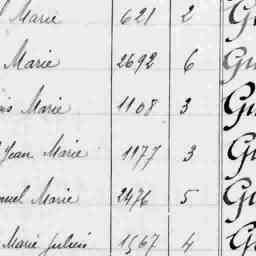 Marie 621 2
Marie 2692 6
Marie 1108 3
Jean Marie 1177 3
nuel Marie 2476 5
Marie Julien 1567 4